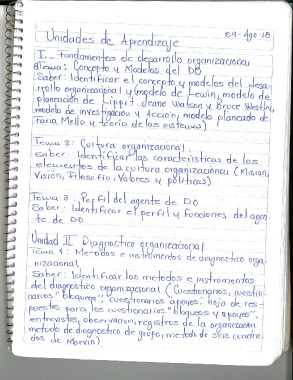 Unidades de Aprendizaje
09-Ago-18
I.- Fundamentos de desarrollo organizacional
Tema: Concepto y Modelos del DO
Saber: Identificar el concepto y modelos del desa-
rrollo organizacional y (modelo de Lewin, modelo de
planeación de Lippit. Jeane Watson y Bruce Westley,
modelo de investigación y acción, modelo planeado de
Faria Mello y teoría de los sistemas)
Tema 2: Cultura organizacional.
Saber: Identificar las características de los
elementos de la cultura organizacional (Misión,
Visión, Filosofía, Valores y políticas)
Tema 3: Perfil del agente de DO
Saber: Identificar el perfil y funciones del agen
te de DO
Unidad II Diagnostico organizacional
Tema 1: Metodos e instrumentos de diagnostico orga-
nizacional
Saber: Identificar los metodos e instrumentos
del diagnostico organizacional (Cuestionarios, cuestio-
narios "bloqueos", cuestionarios apoyos, hoja de res-
puestas para los cuestionarios "bloqueos y apoyos",
entrevistas, observación, registros de la organización
metodo de diagnostico de grupo, metodo de seis cuadra
dos de Marvin).